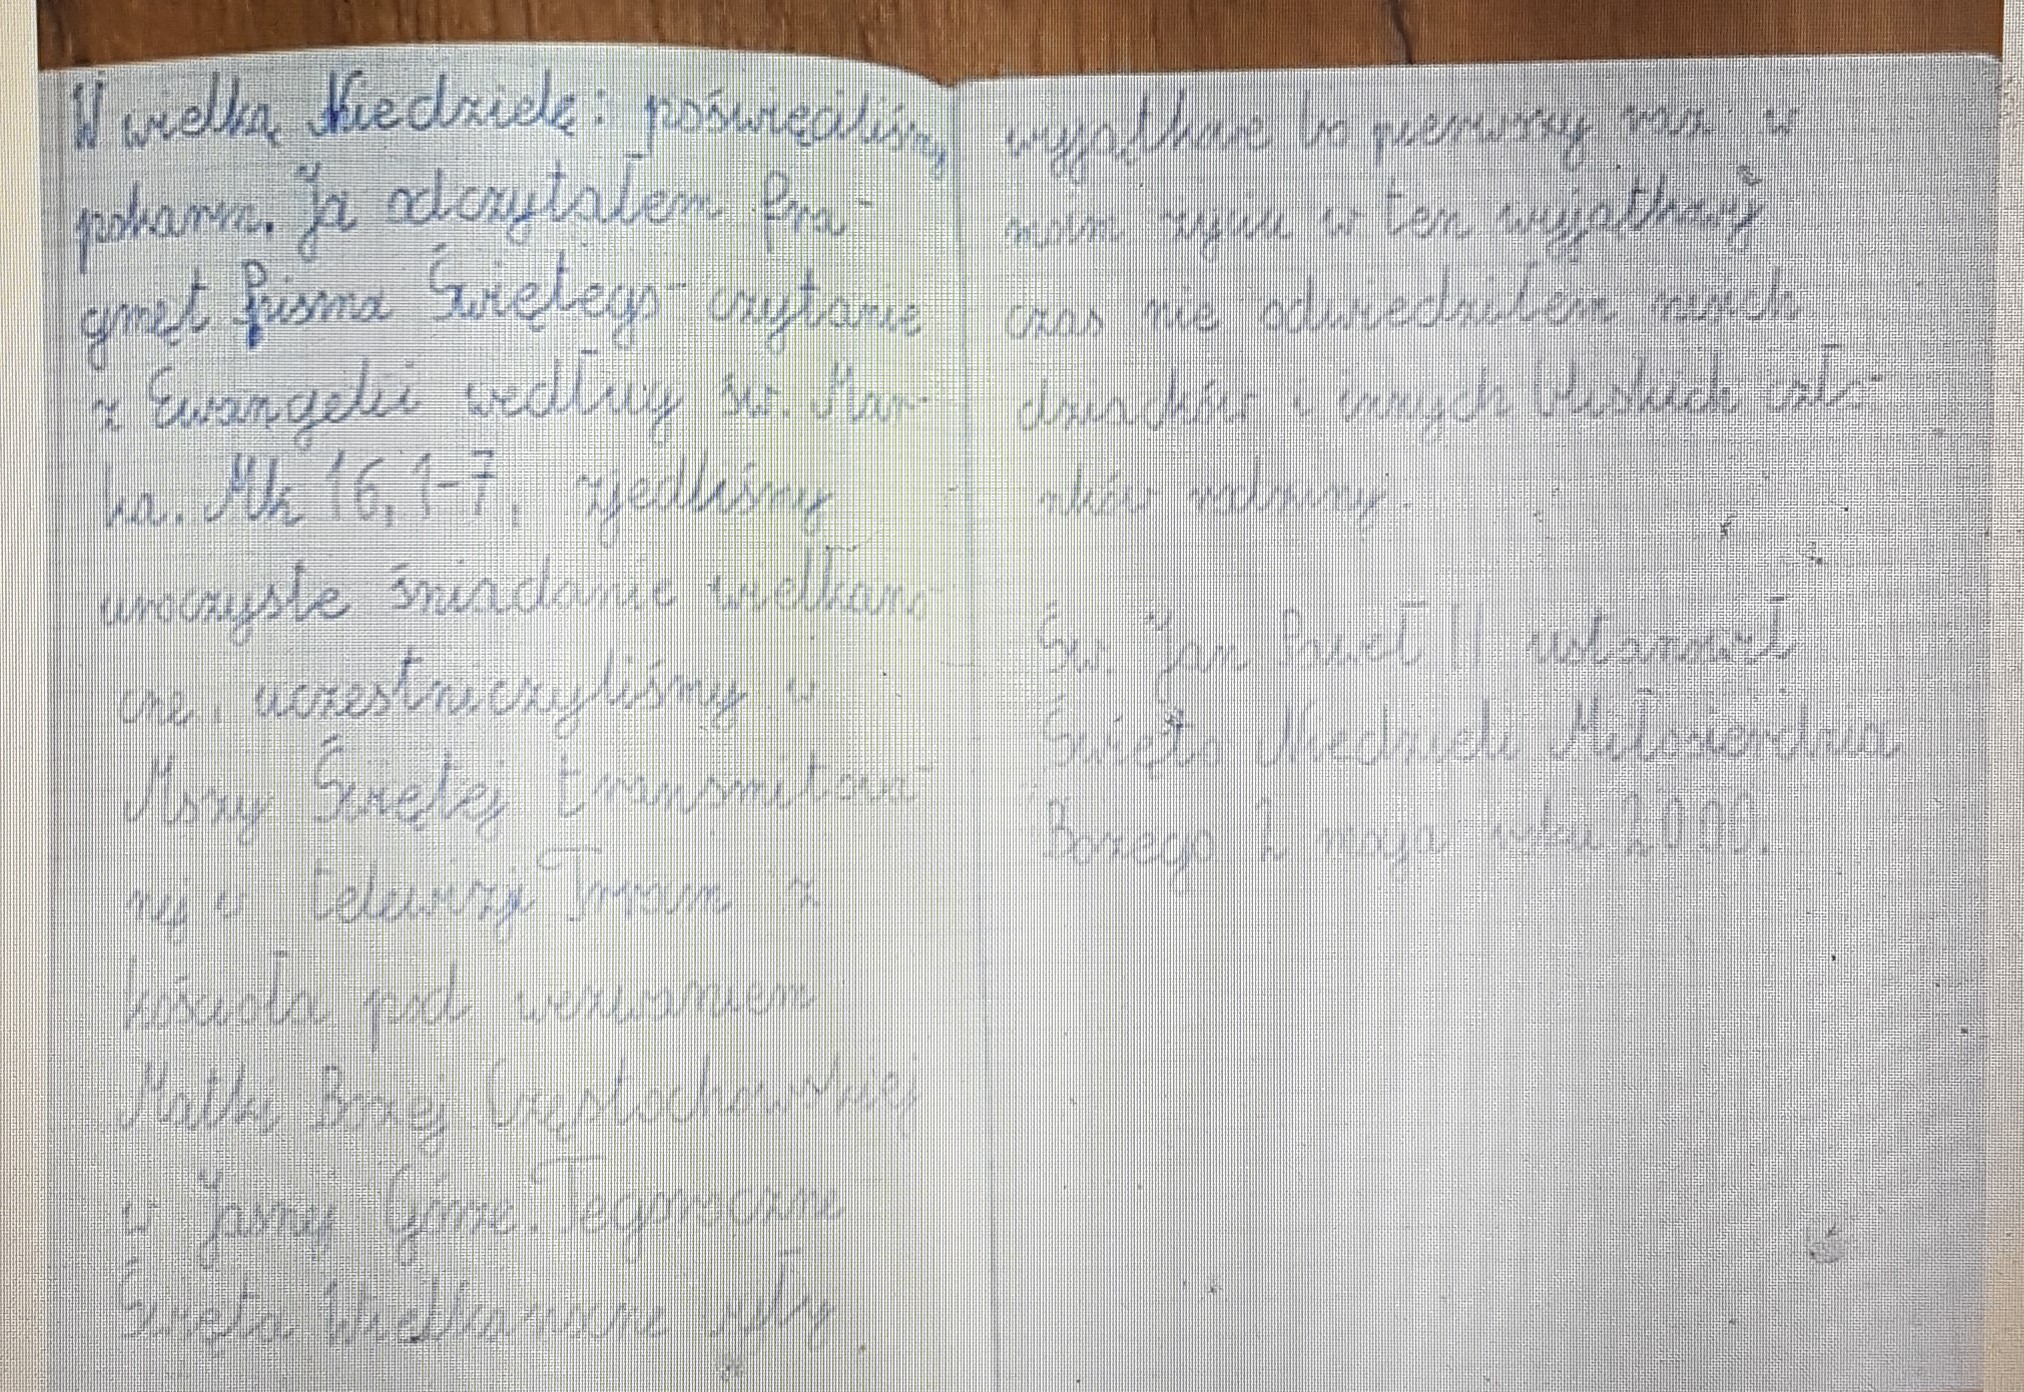 W wielką Niedzielę: poświęciliśmy
pokarm. Ja odczytałem fra-
gmęt Pisma Świętego- czytanie
z Ewangelii według św. Mar-
ka. Mk 16,1-7, zjedliśmy
uroczyste śniadanie wielkano
cne, uczestniczyliśmy w
Mszy Świętej transmitowa-
nej w telewizji Trwam z
kościoła pod wezwaniem
Matki Bożej Częstochowskiej
w Jasnej Górze. Tegoroczne
Święta Wielkanocne były
wyjątkowe bo pierwszy raz w
moim życiu w ten wyjątkowy
czas nie odwiedziłem moich
dziadków i innych bliskich czło-
nków rodziny.
Św. Jan Paweł II ustanowił
Święto Niedzieli Miłosierdzia
Bożego maja roku